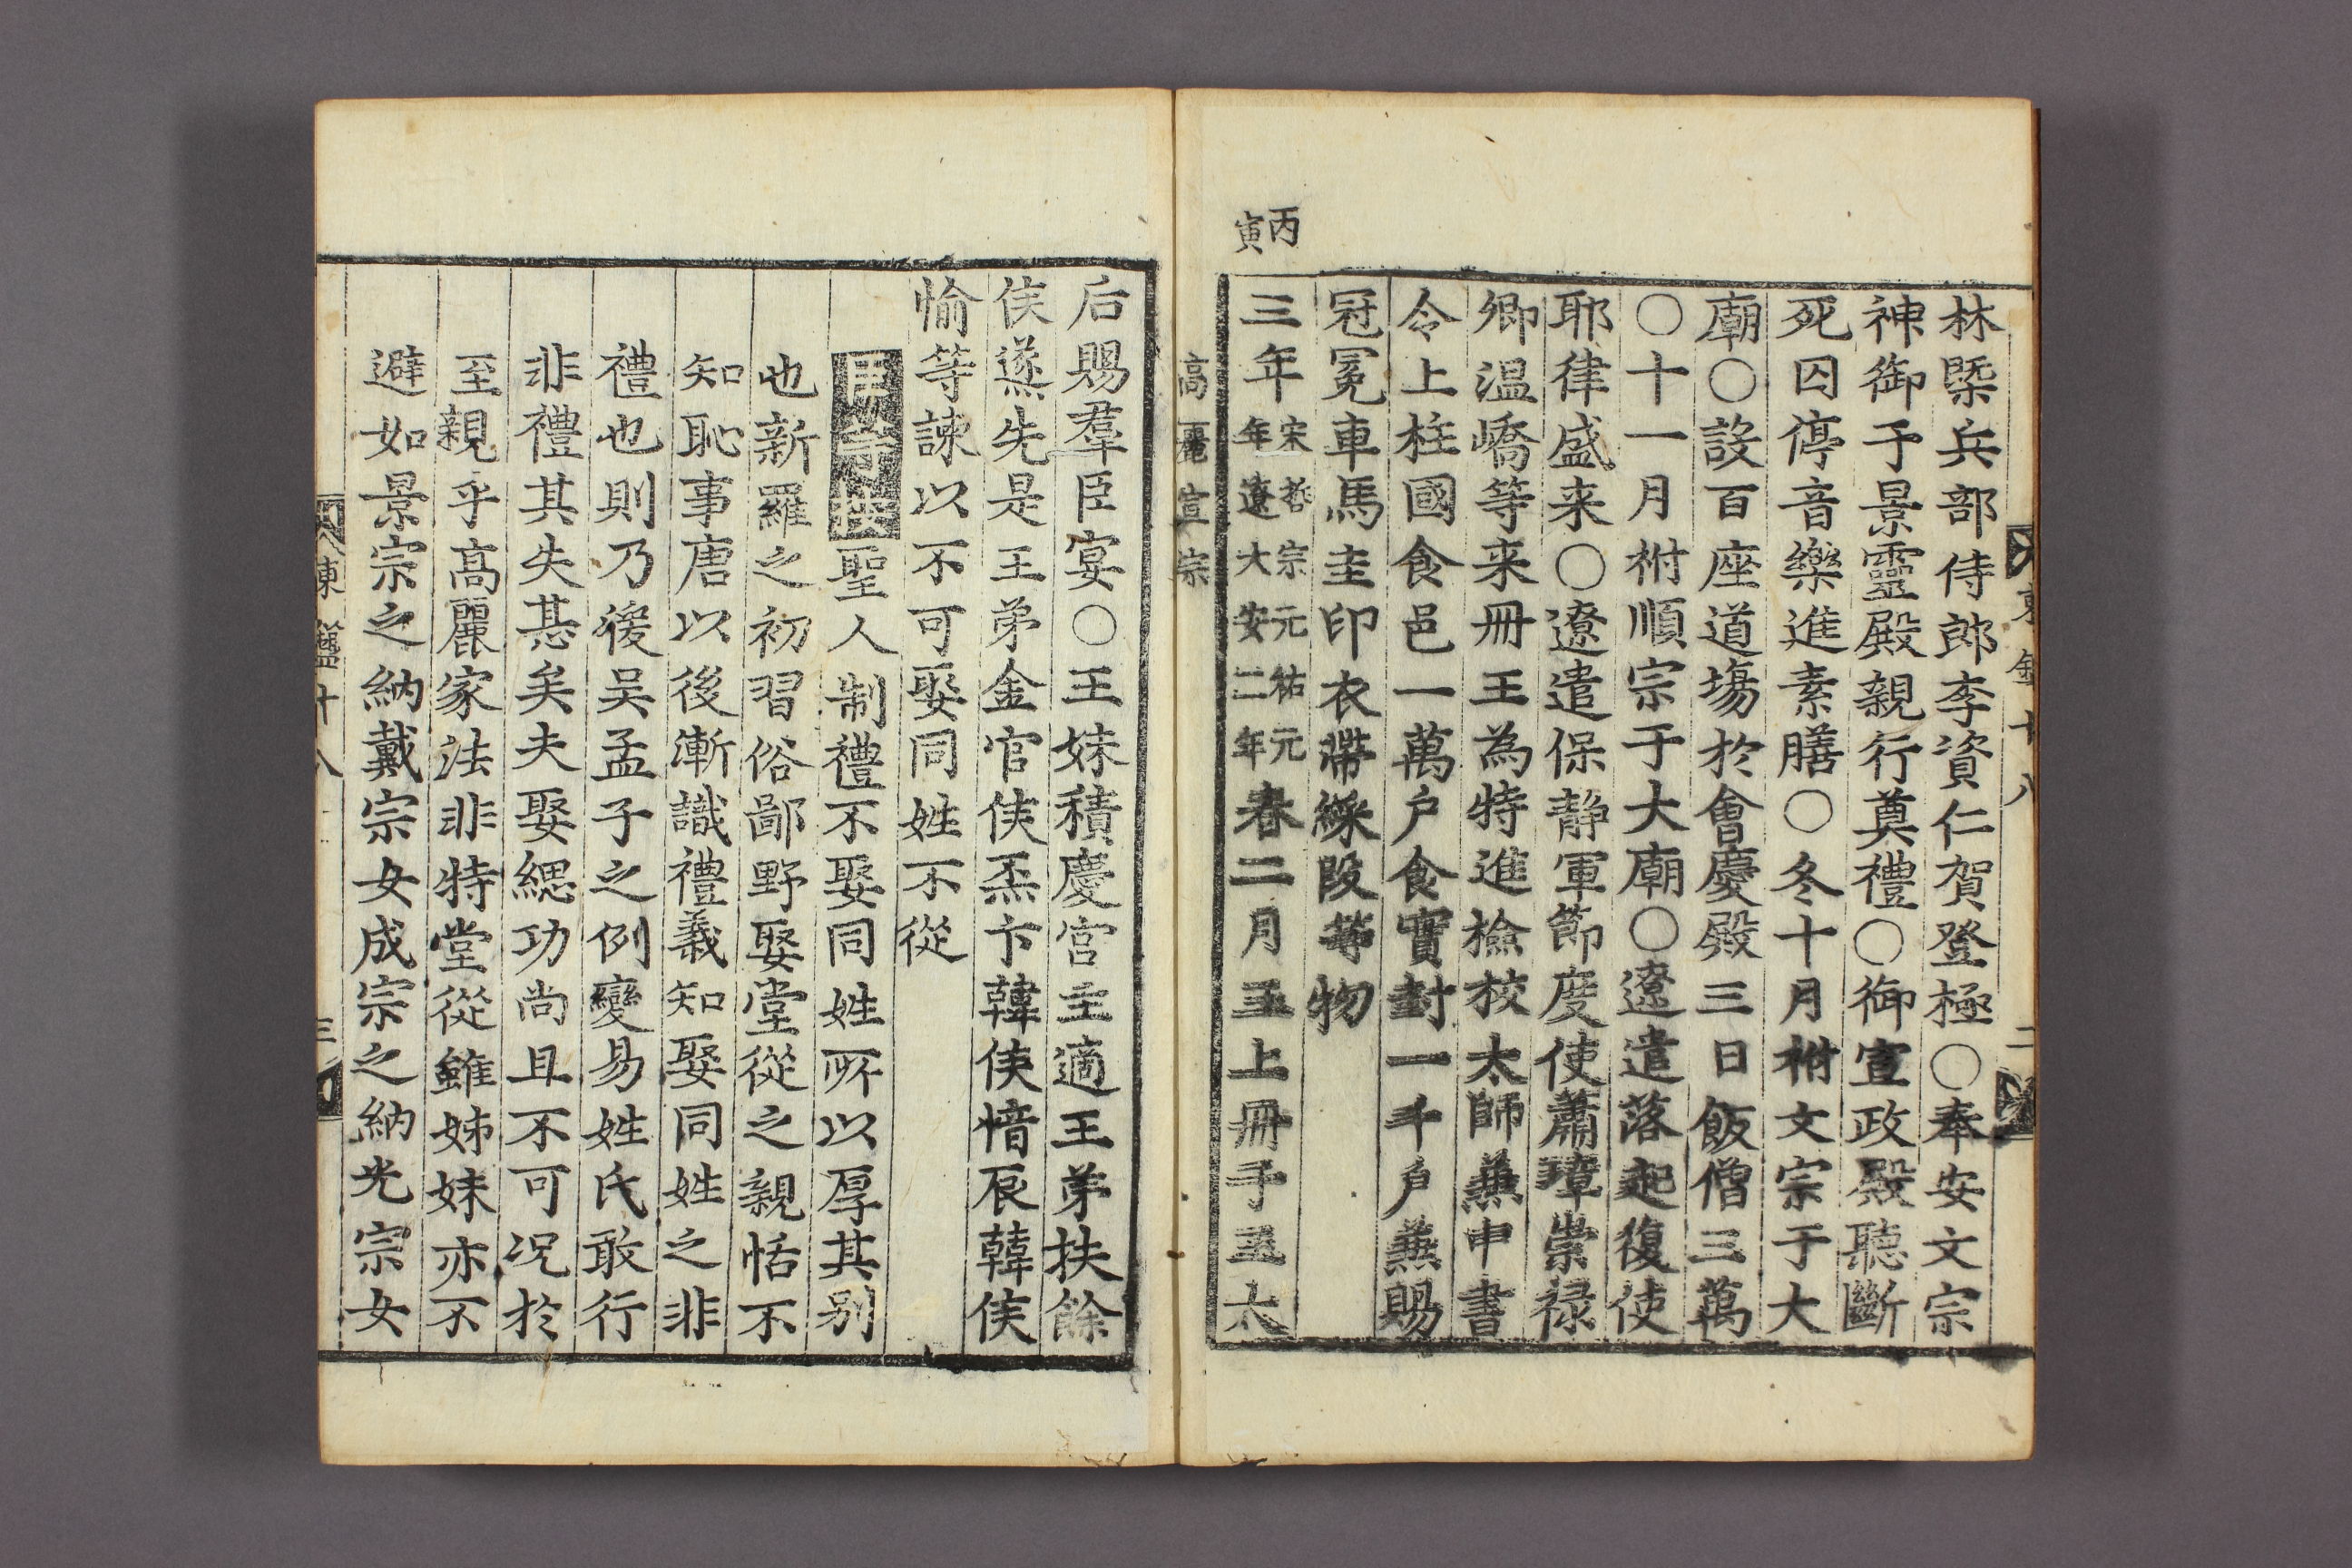 林槩兵部侍郎李資仁賀登極〇奉安文宗
神御于景靈殿親行奠禮〇御宣政殿聽斷
死囚停音樂進素膳〇冬十月祔文宗于大
廟〇設百座道場於會慶殿三日飯僧三萬
〇十一月祔順宗于大廟〇遼遣落起復使
耶律盛来〇遼遣保静軍節度使蕭璋崇禄
卿溫嶠等来冊王為特進檢校太師兼中書
令上柱國食邑一萬户食實封一千户兼賜
冠冕車馬圭印衣帶綵段等物
丙寅
三年宋哲宗元祐元年遼大安二年春二月王上冊于王太
高麗宣宗
后賜羣臣宴〇王妹積慶宮主適王弟扶餘
侯㸂先是王弟金官侯㶨卞韓侯愔辰韓侯
愉等諫以不可娶同姓不從
聖人制禮不娶同姓所以厚其别
也新羅之初習俗鄙野娶堂從之親恬不
知恥事唐以後漸識禮義知娶同姓之非
禮也則乃後吴孟子之例變易姓氏敢行
非禮其失甚矣夫娶緦功尚且不可况於
至親乎高麗家法非特堂從雖姊妹亦不
避如景宗之納戴宗女成宗之納光宗女
東鑑十八
三